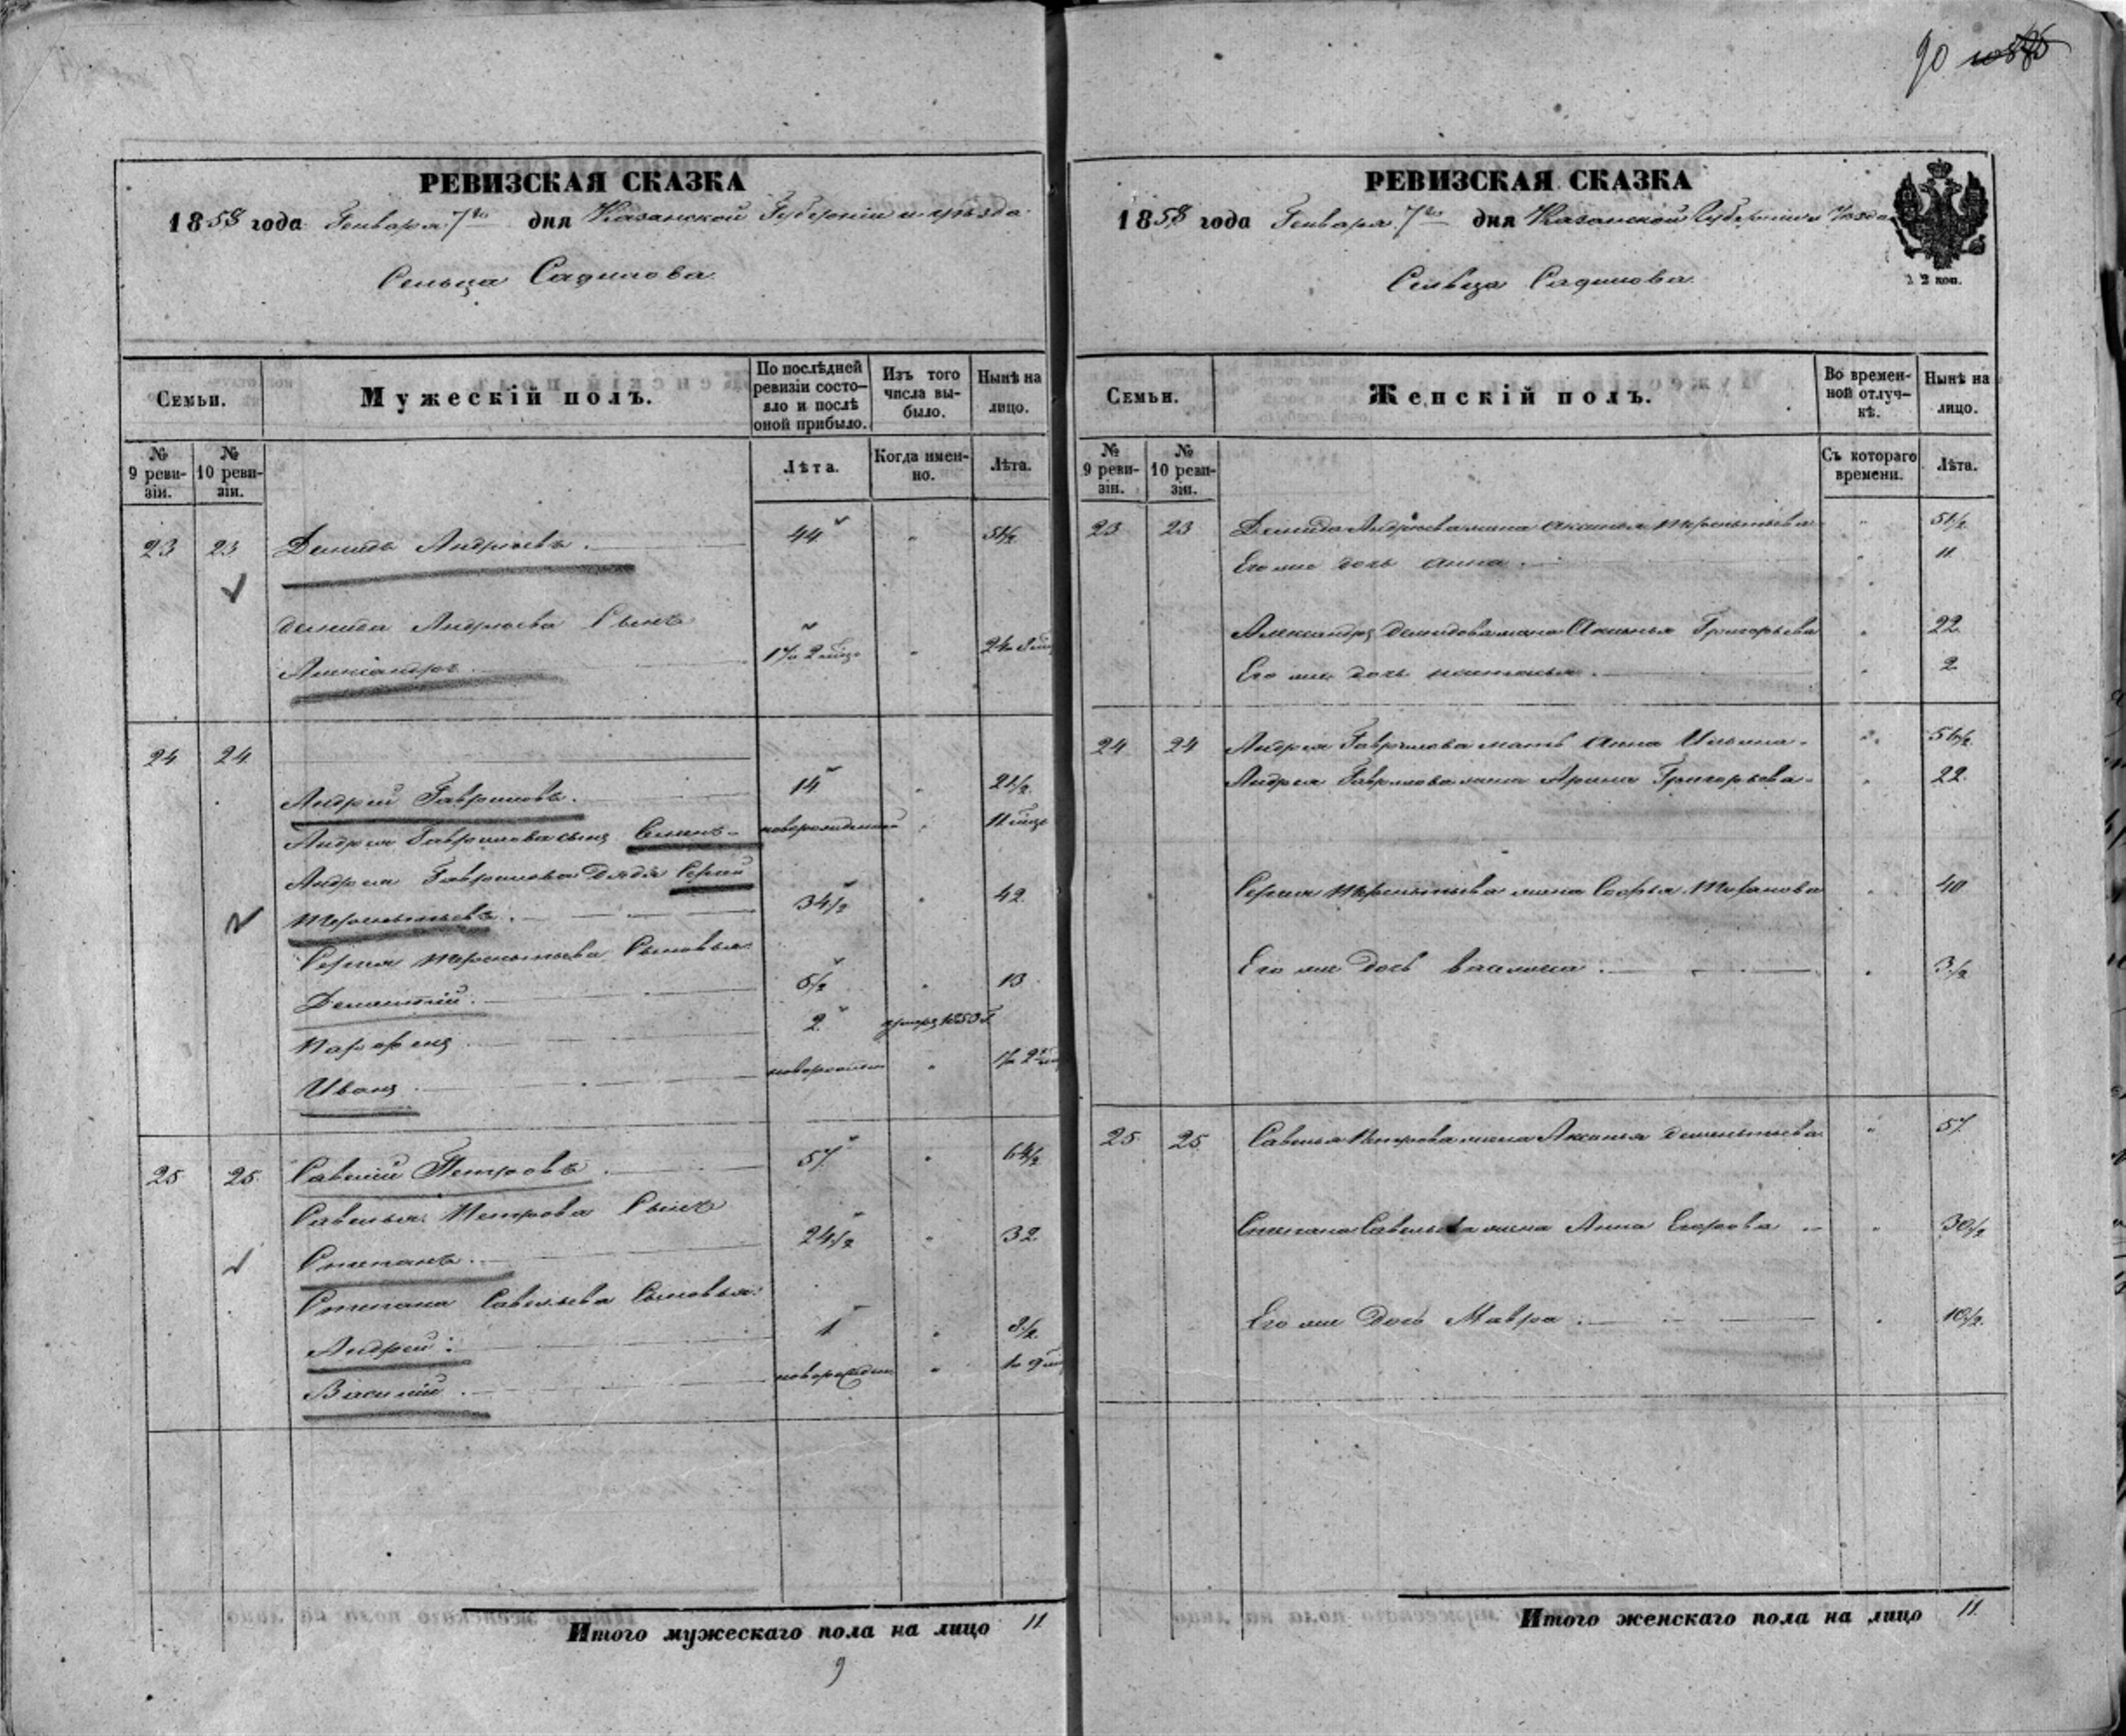 90
РЕВИЗСКАЯ СКАЗКА
1858 года Генваря 7го дня Казанской Губерніи и уѣзда
Сельца Садилова
Семьи.
Мужескій полъ.
По послѣдней ревизіи состо-
яло и послѣ
оной прибыло.
Изъ того
числа вы-
было.
Нынѣ на
лицо.
№
9 реви-
зіи.
№
10 реви-
зіи.
Лѣта.
Когда имен-
но.
Лѣта.
23 23 Демидъ Андреевъ. 44 " 51½
Демида Андреева Сынъ
Александръ
24 24
Андрей Гавриловъ. 14 " 21½
Андрея Гаврилова сынъ Семенъ новорожденный " 11 мѣс
Андрея Гаврилова Дядя Сергей
Терентьевъ. 34½ " 42
Сергея Терентьева Сыновья
Дементій 5½ " 13
Парфенъ 2 умеръ 1850 г.
Иванъ
25 25 Савелій Петровъ 57 " 64½
Савелья Петрова Сынъ
Степанъ. 24½ " 32
Степана Савельева Сыновья:
Андрей: 1 " 8½
Василій. новорожден "
Итого мужескаго пола на лицо 11
9
РЕВИЗСКАЯ СКАЗКА
1858 года Генваря 7го дня Казанской Губерніи и Уѣзда
Сельца Садилова
12 коп.
Семьи.
Женскій полъ.
Во времен-
ной отлуч-
кѣ.
Нынѣ на
лицо.
№
9 реви-
зіи.
№
10 реви-
зіи.
Съ котораго
времени.
Лѣта.
23 23 Демида Андреева жена Аксинья Терентьева " 51½
Его же дочь Анна. " 11
Александра Демидова жена Аксинья Григорьева " 22
Его же дочь Настасья. " 2
24 24 Андрея Гаврилова мать Анна Ильина. " 56½
Андрея Гаврилова жена Арина Григорьева. " 22
Сергея Терентьева жена Софья " 40
Его же Дочь " 3½
25 25 Савелья Петрова жена Аксинья Дементьева " 57
Степана Савельева жена Анна Егорова " 30½
Его же Дочь Мавра. " 10½
Итого женскаго пола на лицо 11